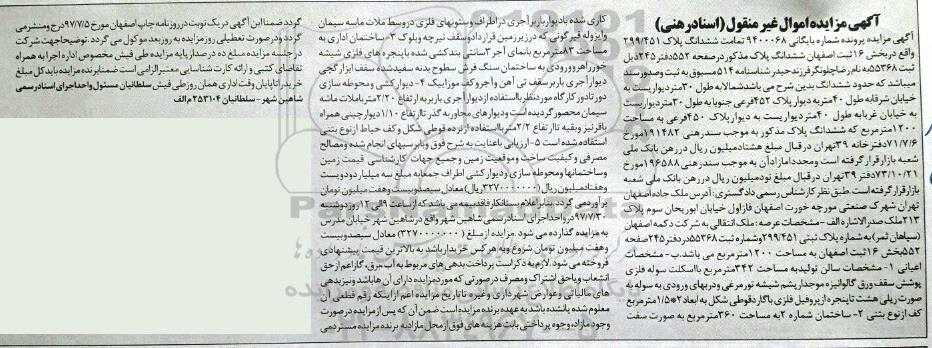 آگهی مزایده اموال غیر منقول (اسناد رهنی)
آگهی مزایده پرونده شماره بایگانی ۹۴۰۰۰۶۸ تمامت ششدانگ پلاک ۲۹۹/۴۵۱
واقع در بخش ۱۶ ثبت اصفهان ششدانگ پلاک مذکور در صفحه ۵۵۲ دفتر ۲۴۵ ذیل
ثبت ۵۵۳۶۸ به نام رضا چلونگر فرزند حیدر شناسنامه ۵۱۴ مسبوق به ثبت و صدور سند
میباشد که حدود ششدانگ بدین شرح می باشد شمالا به طول ۳۰ متر دیواریست به
خیابان شرقا به طول ۴۰ متر به دیوار پلاک ۴۵۲ فرعی جنوبا به طول ۳۰ متر دیواریست
به خیابان غربا به طول ۴۰ متر دیواریست به دیوار پلاک ۴۵۰ فرعی به مساحت
۱۲۰۰ مترمربع که ششدانگ پلاک مذکور به موجب سند رهنی ۱۹۱۴۸۲ مورخ
۷۱/۷/۶ دفترخانه ۳۹ تهران در قبال مبلغ هشتاد میلیون ریال در رهن بانک ملی
شعبه بازار قرار گرفته است و مجددا مازاد آن به موجب سند رهنی ۱۹۶۵۸۸ مورخ
۷۳/۱۰/۲۱ دفتر ۳۹ تهران در قبال مبلغ نود میلیون ریال در رهن بانک ملی شعبه
بازار قرار گرفته است. طبق نظر کارشناس رسمی دادگستری: آدرس ملک جاده اصفهان
تهران شهرک صنعتی مورچه خورت اصفهان فاز اول خیابان ابوریحان سوم پلاک
۲۱۳ ملک صدرالاشاره الف- مشخصات عرصه: ملک انتقالی به شرکت دکمه اصفهان
(سپاهان ثمر) به شماره پلاک ثبتی ۲۹۹/۴۵۱ و شماره ثبت ۵۵۳۶۸ در دفتر ۲۴۵ صفحه
۵۵۲ بخش ۱۶ ثبت اصفهان به مساحت ۱۲۰۰ مترمربع می باشد. ب- مشخصات
اعیانی ۱- مشخصات سالن تولید به مساحت ۳۴۲ مترمربع با اسکلت سوله فلزی
پوشش سقف ورق گالوانیزه موجدار پشم شیشه تورمرغی و دربهای ورودی به سوله به
صورت ریلی هشت تا پنجره از پروفیل فلزی با گارد قوطی شکل به ابعاد ۲*۱/۵ مترمربع
کف از نوع بتنی ۲- ساختمان شماره ۲ به مساحت ۳۶۰ مترمربع به صورت سفت
کاری شده با دیوار باربر آجری در اطراف و ستونهای فلزی در وسط ملات ماسه سیمان
وایزوله قیرگونی که در زیرزمین قرار داد و سقف تیرچه و بلوک ۳- ساختمان اداری به
مساحت ۸۳ مترمربع با نمای آجر ۳ سانتی بندکشی شده با پنجره های فلزی شیشه
خور راهرو ورودی به ساختمان سنگ فرش سطوح بدنه سفید شده سقف ابزار گچی
دیوار آجری باربر سقف تی آهن و آجر و کف موزاییک ۴- دیوارکشی و محوطه سازی
دور تا دور کارگاه مورد نظر با استفاده از دیوار آجری باربر به ارتفاع ۲/۲۰ متر با ملات ماسه
سیمان محصور گردیده است و دیوارهای مجاور به گذر تا ارتفاع ۱/۱۰ دیوارچینی همراه
با قرنیز و بقیه تا ارتفاع ۲/۲ متر با استفاده از نرده قوطی شکل و کف حیاط از نوع بتنی
استفاده شده است ۵- ارزیابی با عنایت به شرح فوق و بابررسیهای انجام شده و مصالح
مصرفی و کیفیت ساخت و موقعیت زمین و جمیع جهات کارشناسی قیمت زمین
و ساختمانها و محوطه سازی و دیوارکشی اطراف جمعا به مبلغ سه میلیارد و دویست
و هفتاد میلیون ریال (۳۲۷۰۰۰۰۰۰۰ ریال) معادل سیصد و بیست و هفت میلیون تومان
برآورد می گردد بنابراعلام بستانکار فاقد بیمه می باشد که از ساعت ۹ الی ۱۲ روز دوشنبه
۹۷/۷/۳۰ در واحد اجرای اسناد رسمی شاهین شهر واقع در شاهین شهر خیابان مدرس
به مزایده گذارده می شود. مزایده از مبلغ (۳۲۷۰۰۰۰۰۰۰) معادل سیصد و بیست
و هفت میلیون تومان شروع و به هر کس خریدار باشد به بالاترین قیمت پیشنهادی
فروخته می شود. لازم به ذکر است پرداخت بدهی های مربوط به آب، برق، گاز اعم از حق
انشعاب و یا حق اشتراک و مصرف در صورتی که مورد مزایده دارای آن ها باشد و نیز بدهی
های مالیاتی و عوارض شهرداری و غیره تا تاریخ مزایده اعم از اینکه رقم قطعی آن
معلوم شده یا نشده باشد به عهده برنده مزایده است ضمن آن که پس از مزایده در صورت
وجود مازاد، وجوه پرداختی بابت هزینه های فوق از محل مازاد به برنده مزایده مسترد می
گردد ضمنا این آگهی در یک نوبت در روزنامه چاپ اصفهان مورخ ۹۷/۷/۵ درج و منتشر می
گردد و در صورت تعطیلی روز مزایده به روز بعد موکول می گردد. توضیحا جهت شرکت
در جلسه مزایده مبلغ ده درصد ارز پایه مزایده طی فیش مخصوص اداره اجرا به همراه
تقاضای کتبی و ارائه کارت شناسایی معتبر الزامی است ضمنا برنده مزایده باید کل مبلغ
خرید را تا پایان وقت اداری همان روز طی فیش سلطانیان مسئول واحد اجرای اسناد رسمی
شاهین شهر- سلطانیان ۲۵۳۱۰۴ م الف